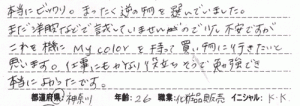 本当にビックリ。まったく逆の物を選んでいました。
まだ洋服などで試していませんので少し不安ですが
これを機に My color を持って買い物に行きたいと
思います。仕事にもかなり役立ちそうで勉強でき
本当によかったです。
都道府県 神奈川 年齢:26 職業:化粧品販売 イニシャル:K・K